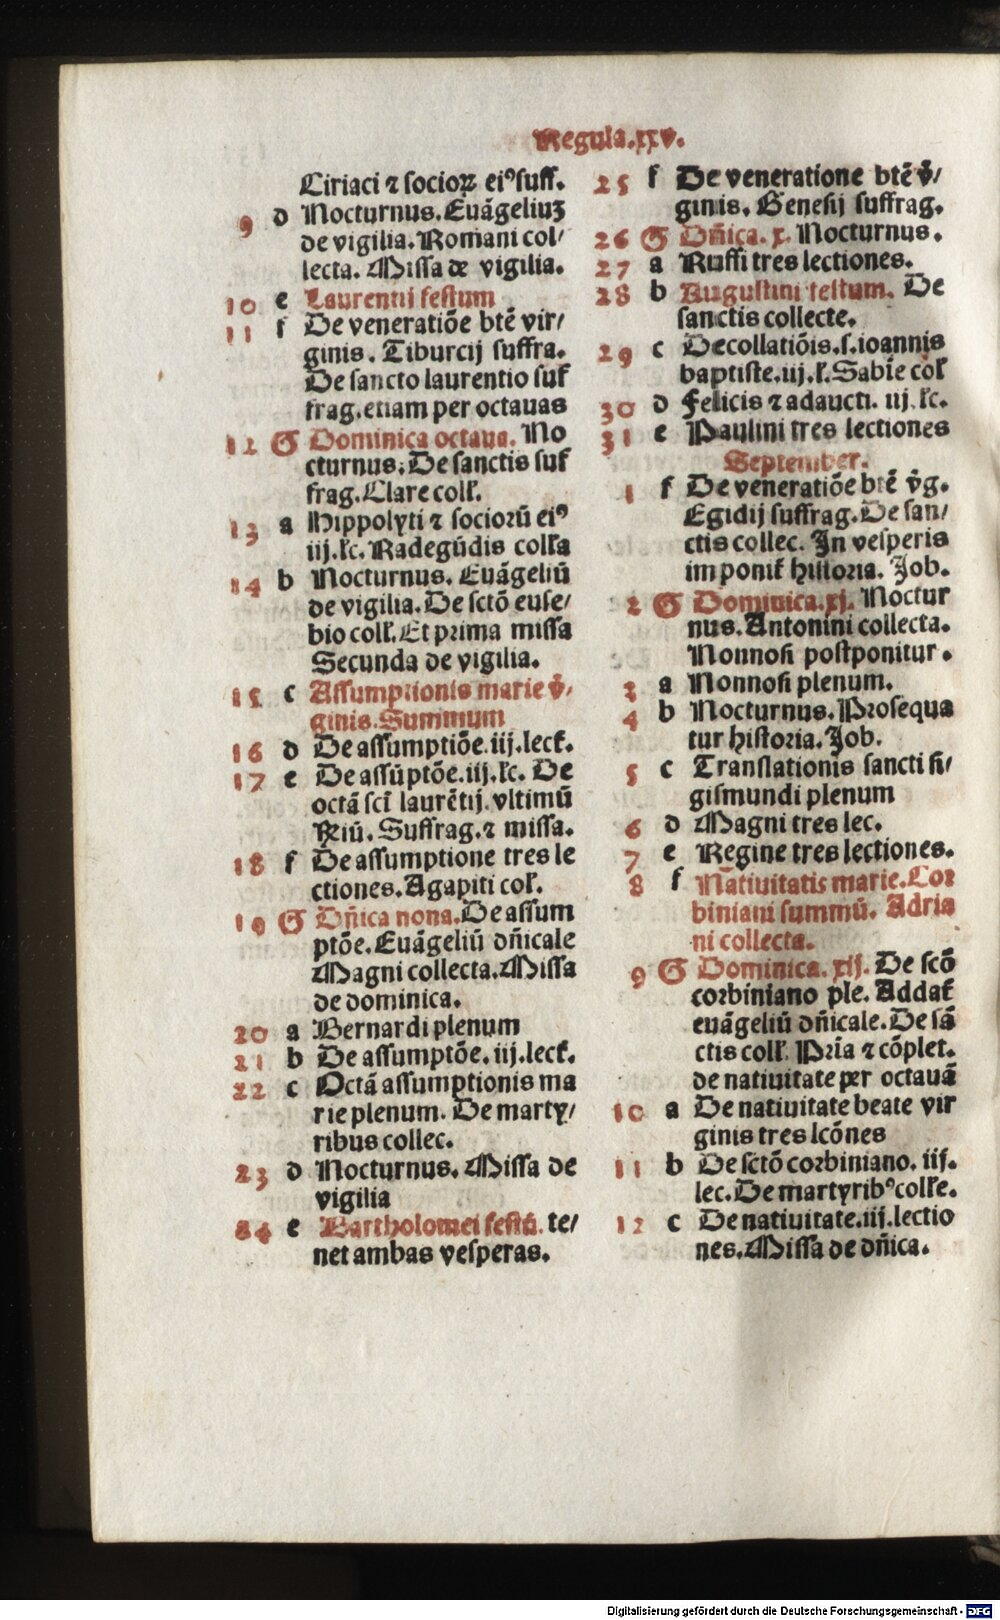 Regula.xxv.
Ciriaci ⁊ socioꝝ eiꝰ suff.
9 d Nocturnus. Euāgeliuꝫ
de vigilia. Romani col/
lecta. Missa de vigilia.
10 e Laurentii festum
11 f De veneratiōe btē vir/
ginis. Tiburcij suffra.
De sancto laurentio suf
frag. etiam per octauas
12 G Dominica octaua. No
cturnus. De sanctis suf
frag. Clare coll̄.
13 a Hippolyti ⁊ socioꝛū eiꝰ
iij. lc̄. Radegūdis coll̄a
14 b Nocturnus. Euāgeliū
de vigilia. De sctō euse/
bio coll̄. Et pꝛima missa
Secunda de vigilia.
15 c Assumptionis marie v̄/
ginis. Summum
16 d De assumptiōe. iij. lect̄.
17 e De assūptōe. iij. lc̄. De
octā scī laurētij. vltimū
R̄iū. Suffrag. ⁊ missa.
18 f De assumptione tres le
ctiones. Agapiti col̄.
19 G Dn̄ica nona. De assum
ptōe. Euāgeliū dn̄icale
Magni collecta. Missa
de dominica.
20 a Bernardi plenum
21 b De assumptōe. iij. lect̄.
22 c Octā assumptionis ma
rie plenum. De marty/
ribus collec.
23 d Nocturnus. Missa de
vigilia
84 e Bartholomei festū. te/
net ambas vesperas.
25 f De veneratione btē v̄/
ginis. Genesij suffrag.
26 G Dn̄ica. x. Nocturnus.
27 a Ruffi tres lectiones.
28 b Augustini festum. De
sanctis collecte.
29 c Decollatiōis. s. ioannis
baptiste. iij. l̄. Sabīe col̄
30 d Felicis ⁊ adaucti. iij. lc̄.
31 e Paulini tres lectiones
September.
1 f De veneratiōe btē v̄g.
Egidij suffrag. De san/
ctis collec. In vesperis
imponit̄ histoꝛia. Job.
2 G Dominica. xj. Noctur
nus. Antonini collecta.
Nonnosi postponitur.
3 a Nonnosi plenum.
4 b Nocturnus. Pꝛosequa
tur histoꝛia. Job.
5 c Translationis sancti si/
gismundi plenum
6 d Magni tres lec.
7 e Regine tres lectiones.
8 f Natiuitatis marie. Coꝛ
biniani summū. Adria
ni collecta.
9 G Dominica. xij. De scō
coꝛbiniano ple. Addat̄
euāgeliū dn̄icale. De sā
ctis coll̄. Pꝛīa ⁊ cōplet.
de natiuitate per octauā
10 a De natiuitate beate vir
ginis tres lcōnes
11 b De sctō coꝛbiniano. iij.
lec. De martyribꝰ coll̄e.
12 c De natiuitate. iij. lectio
nes. Missa de dn̄ica.
Digitalisierung gefördert durch die Deutsche Forschungsgemeinschaft - DFG